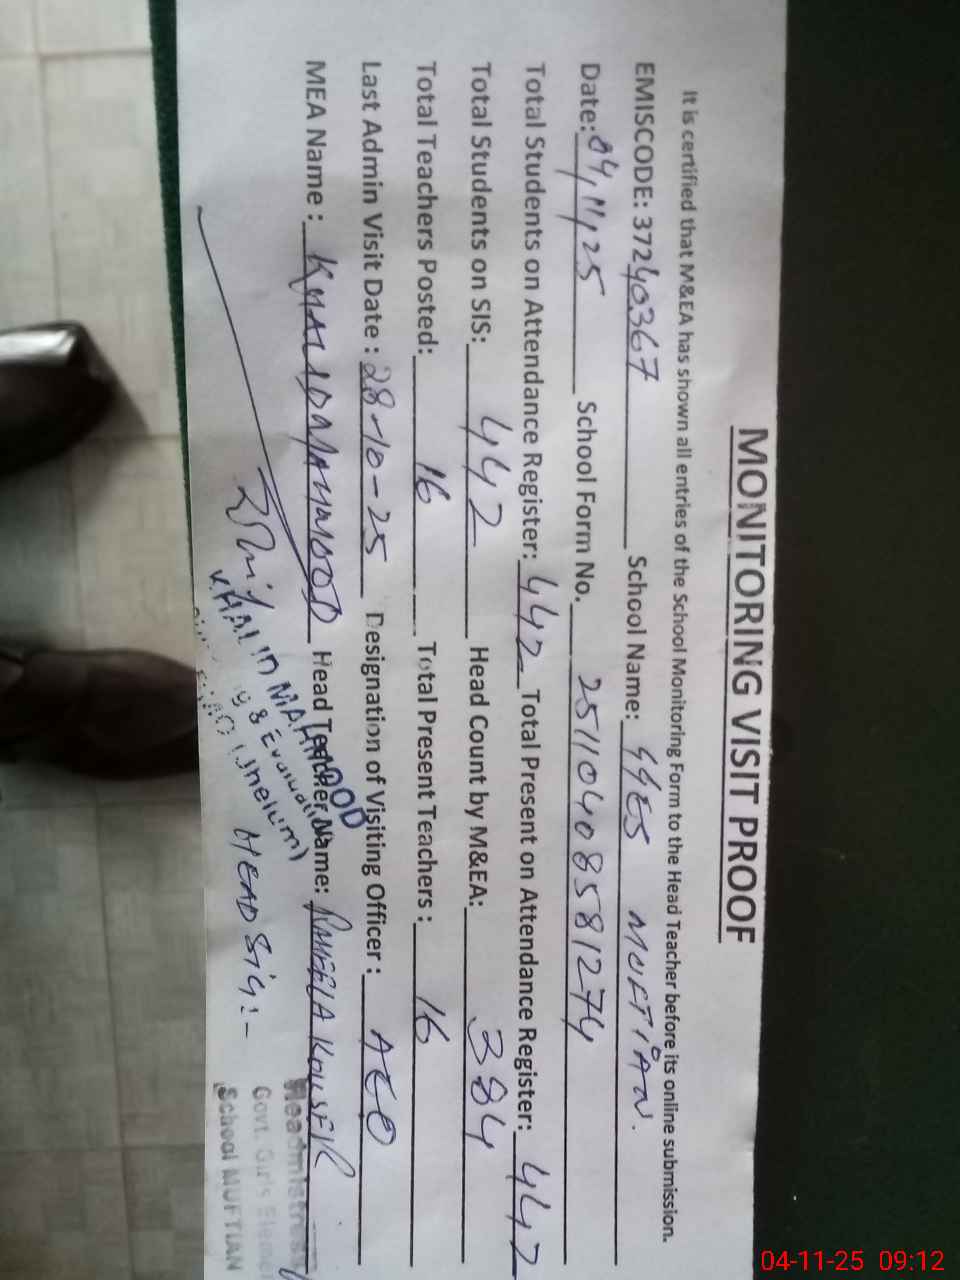 MONITORING VISIT PROOF
It is certified that M&EA has shown all entries of the School Monitoring Form to the Head Teacher before its online submission.
EMISCODE: 37240367 School Name: GGES MUFTIAN.
Date: 04,11,25 School Form No. 25110408581274
Total Students on Attendance Register: 442 Total Present on Attendance Register: 442
Total Students on SIS: 442 Head Count by M&EA: 384
Total Teachers Posted: 16 Total Present Teachers : 16
Last Admin Visit Date : 28-10-25 Designation of Visiting Officer : AEO
MEA Name : KHALID MAHMOOD Head Teacher Name: RAHEELA KOUSER
KHALID MAHMOOD
& Evaluation
Jhelum)
HEAD Sig:-
Headmistress
Govt. Girls Elemen
School MUFTIAN
04-11-25 09:12